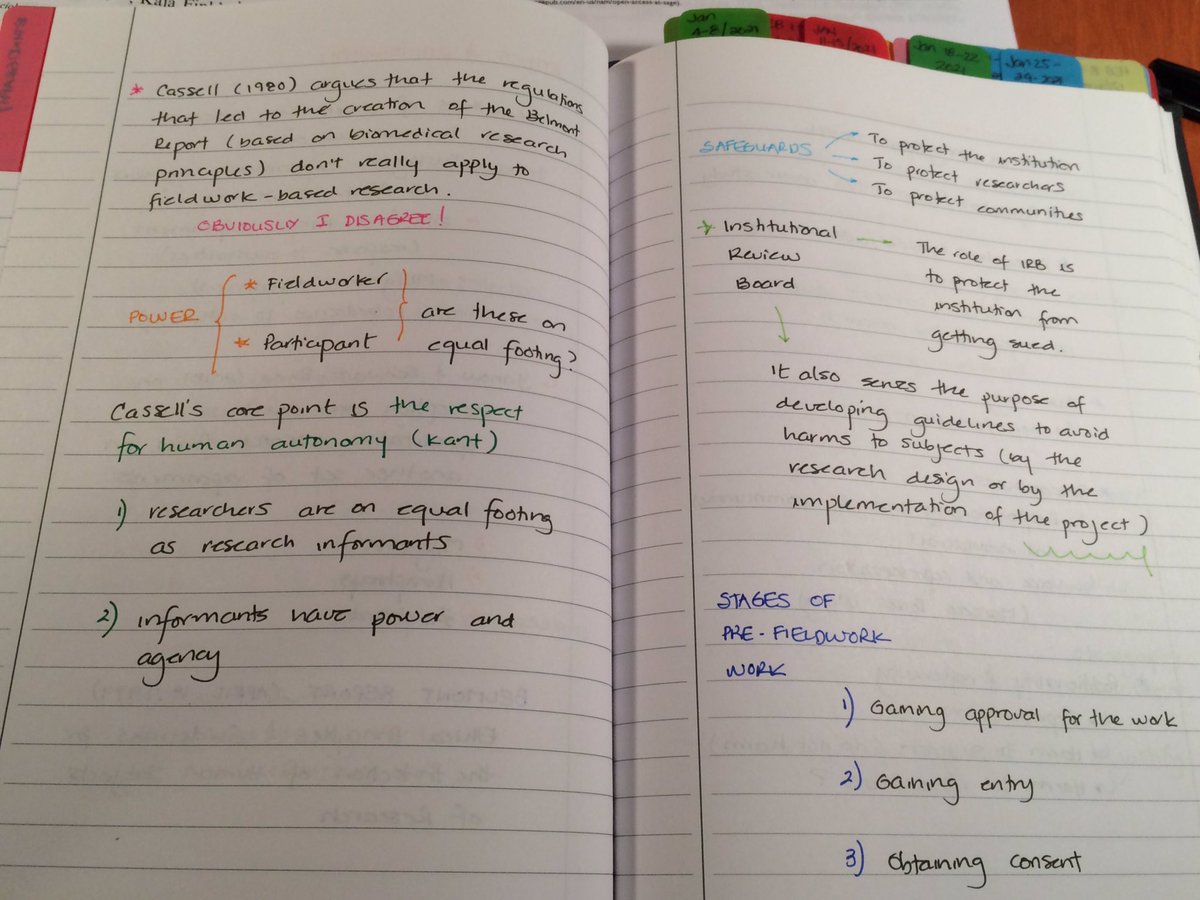 Jan
4-8/2021
JAN
11-15/2021
Jan 18-22
2021
Jan 25-
29-2021
* Cassell (1980) argues that the regulations
that led to the creation of the Belmont
Report (based on biomedical research
principles) don't really apply to
fieldwork-based research.
OBVIOUSLY I DISAGREE!
POWER
* Fieldworker
* Participant
are these on
equal footing?
Cassell's core point is the respect
for human autonomy (Kant)
1) researchers are on equal footing
as research informants
2) informants have power and
agency
SAFEGUARDS
To protect the institution
To protect researchers
To protect communities
* Institutional
Review
Board
The role of IRB is
to protect the
institution from
getting sued.
It also serves the purpose of
developing guidelines to avoid
harms to subjects (by the
research design or by the
implementation of the project)
STAGES OF
PRE-FIELDWORK
WORK
1) Gaining approval for the work
2) Gaining entry
3) Obtaining consent